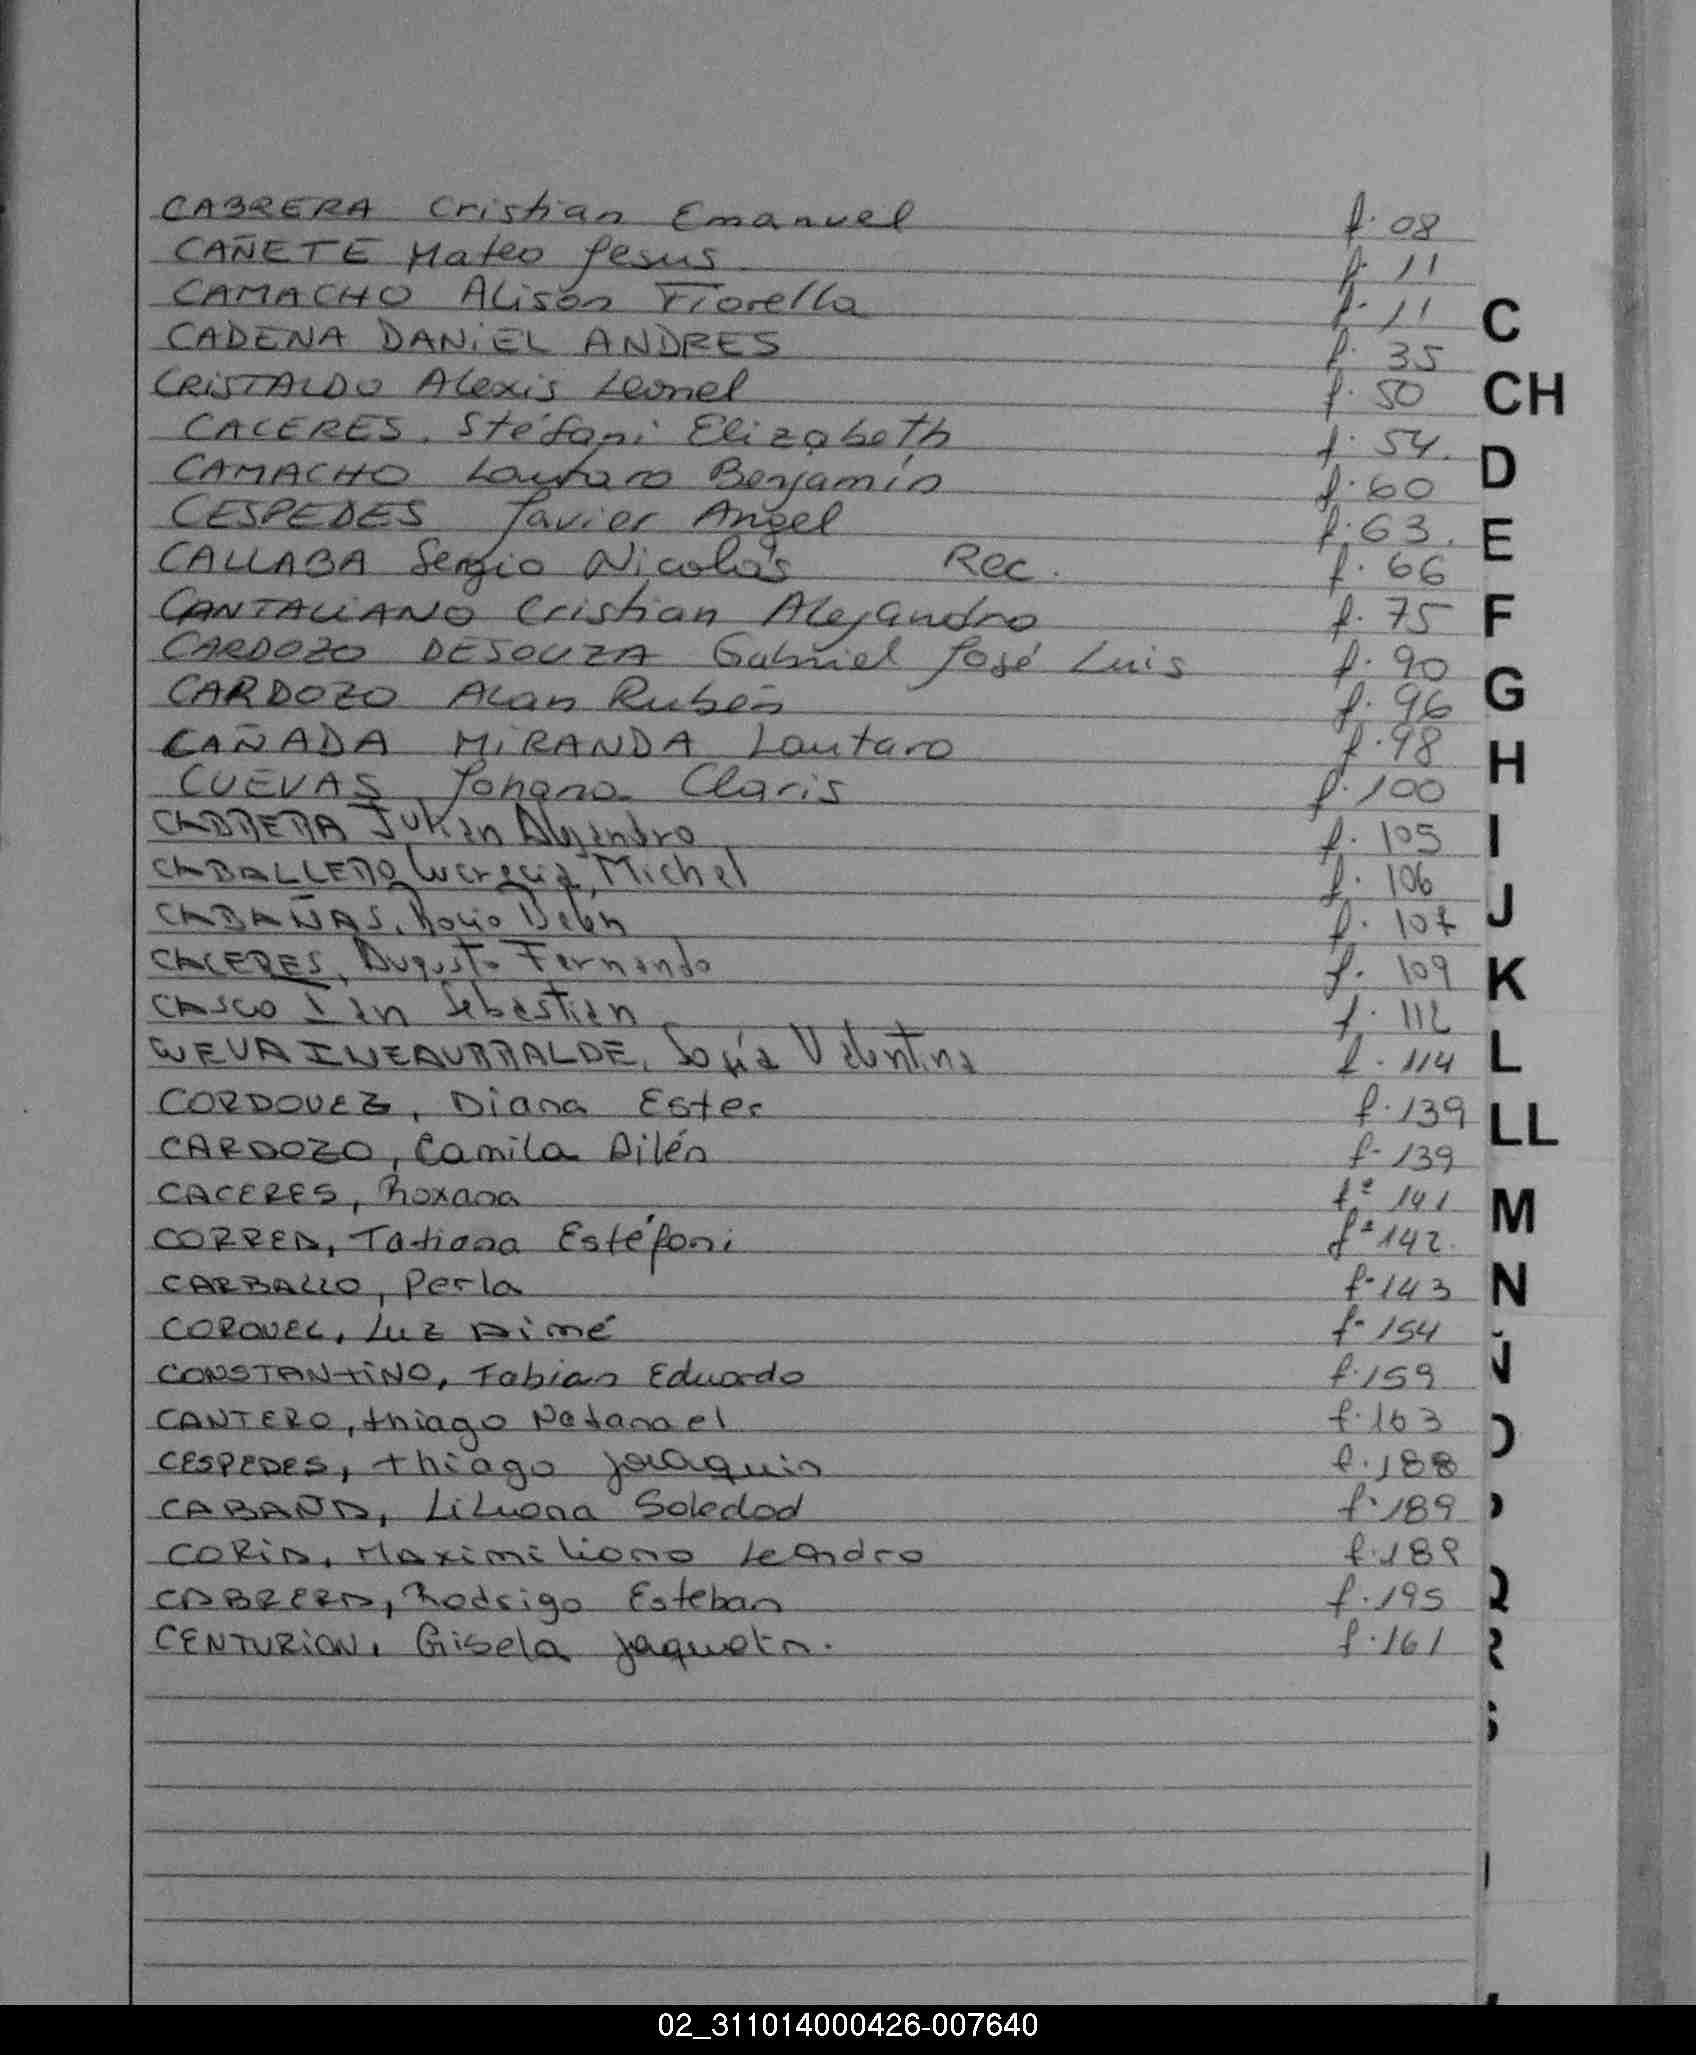 CABRERA Cristian Emanuel f. 08
CAÑETE Mateo Jesus f. 11
CAMACHO Alison Fiorella f. 11
CADENA DANIEL ANDRES f. 35
CRISTALDO Alexis Leonel f. 50
CACERES. Stéfani Elizabeth f. 54.
CAMACHO Lautaro Benjamín f. 60
CESPEDES Javier Angel f. 63.
CALLABA Sergio Nicolás Rec. f. 66
CANTALIANO Cristian Alejandro f. 75
CARDOZO DESOUZA Gabriel José Luis f. 90
CARDOZO Alan Rubén f. 96
CAÑADA MIRANDA Lautaro f. 98
CUEVAS Johana Claris f. 100
CABRERA Julian Alejandro f. 105
CABALLERO Lucrecia, Michel f. 106
CABAÑAS, Rocio Belén f. 107
CACERES, Augusto Fernando f. 109
CASCO Ian Sebastian f. 112
Sofía Valentina f. 114
CORDOVEZ, Diana Ester f. 139
CARDOZO, Camila Ailén f. 139
CACERES, Roxana fº 141
CORREA, Tatiana Estéfani fº 142.
CARBALLO, Perla f. 143
CORONEL, Luz Aimé f. 154
CONSTANTINO, Fabian Eduardo f. 159
CANTERO, thiago Natanael f. 163
CESPEDES, thiago joaquin f. 188
CABAÑA, Liliana Soledad f. 189
CORIA, Maximiliano Leandro f. 189
CABRERA, Rodrigo Esteban f. 195
CENTURION, Gisela jaquelin. f. 161
C
CH
D
E
F
G
H
I
J
K
L
LL
M
N
02_311014000426-007640